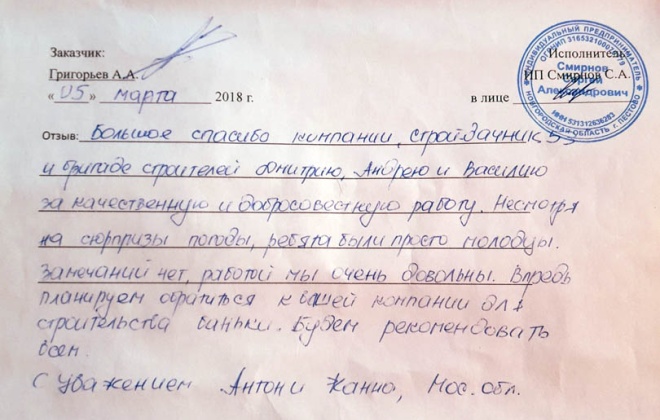 Заказчик:
Григорьев А.А.
«05» марта 2018 г.
Исполнитель:
ИП Смирнов С.А.
в лице
ИНДИВИДУАЛЬНЫЙ ПРЕДПРИНИМАТЕЛЬ
Смирнов
Сергей
Александрович
НОВГОРОДСКАЯ ОБЛАСТЬ г. ПЕСТОВО
Отзыв: Большое спасибо компании, СтройДачник 53
и бригаде строителей Дмитрию, Андрею и Василию
за качественную и добросовестную работу. Несмотря
на сюрпризы погоды, ребята были просто молодцы.
Замечаний нет, работой мы очень довольны. Впредь
планируем обратиться к вашей компании для
строительства баньки. Будем рекомендовать
всем.
С уважением Антон и Жанна, Мос. обл.